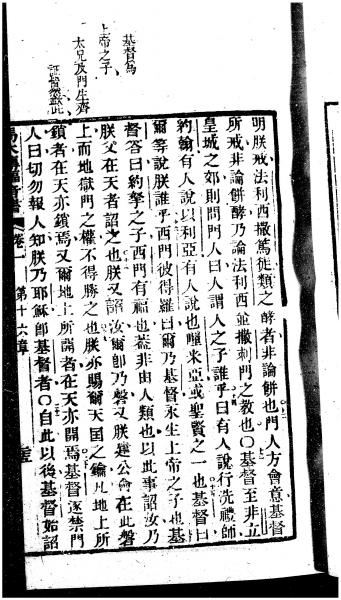 基督爲
上帝之子
太兄及門生齊
證皆鑿此
明朕戒法利西撒篤徒類之酵者非論餅也門人方會意基督
所戒非論餅酵乃論法利西並撒刺門之教也〇基督至非立
皇城之郊則問門人曰人謂人之子誰乎曰有人說行洗禮師
約翰有人說以利亞有人說也喱米亞或聖賢之一也基督曰
爾等說朕誰乎西門彼得羅曰爾乃基督永生上帝之子也基
督答曰約拏之子西門有福也蓋非由人類也以此事詔汝乃
朕父在天者詔之也朕又詔汝爾卽乃磐又朕建公會在此磐
上而地獄門之權不得勝之也朕亦賜爾天国之鑰凡地上所
鎖者在天亦鎖焉又爾地上所開者在天亦開焉基督遂禁門
人曰切勿報人知朕乃耶穌卽基督者〇自此以後基督始詔
卷一 第十六章